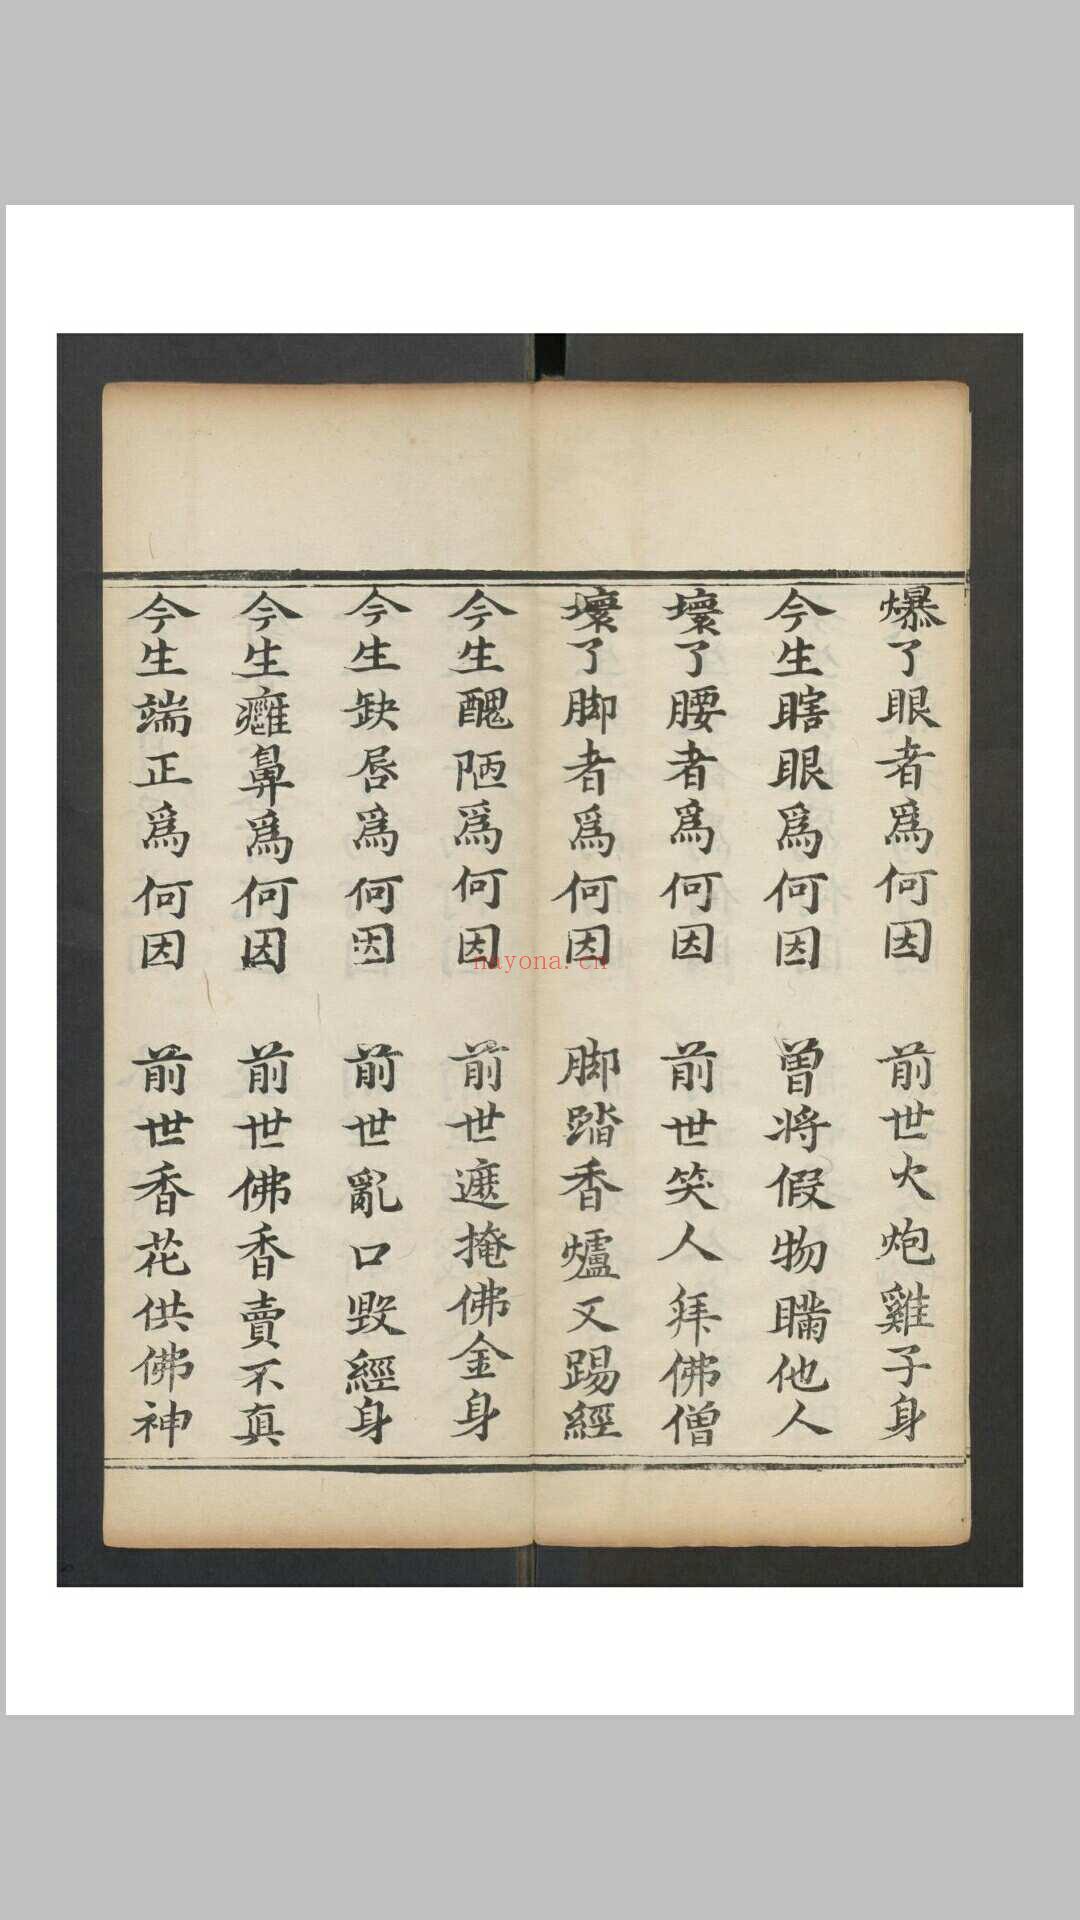 爆了眼者爲何因　前世火炮雞子身
今生瞎眼爲何因　曾將假物瞞他人
壞了腰者爲何因　前世笑人拜佛僧
壞了脚者爲何因　脚踏香爐又踢經
今生醜陋爲何因　前世遮掩佛金身
今生缺唇爲何因　前世亂口毀經身
今生癰鼻爲何因　前世佛香賣不真
今生端正爲何因　前世香花供佛神
nayona.cn